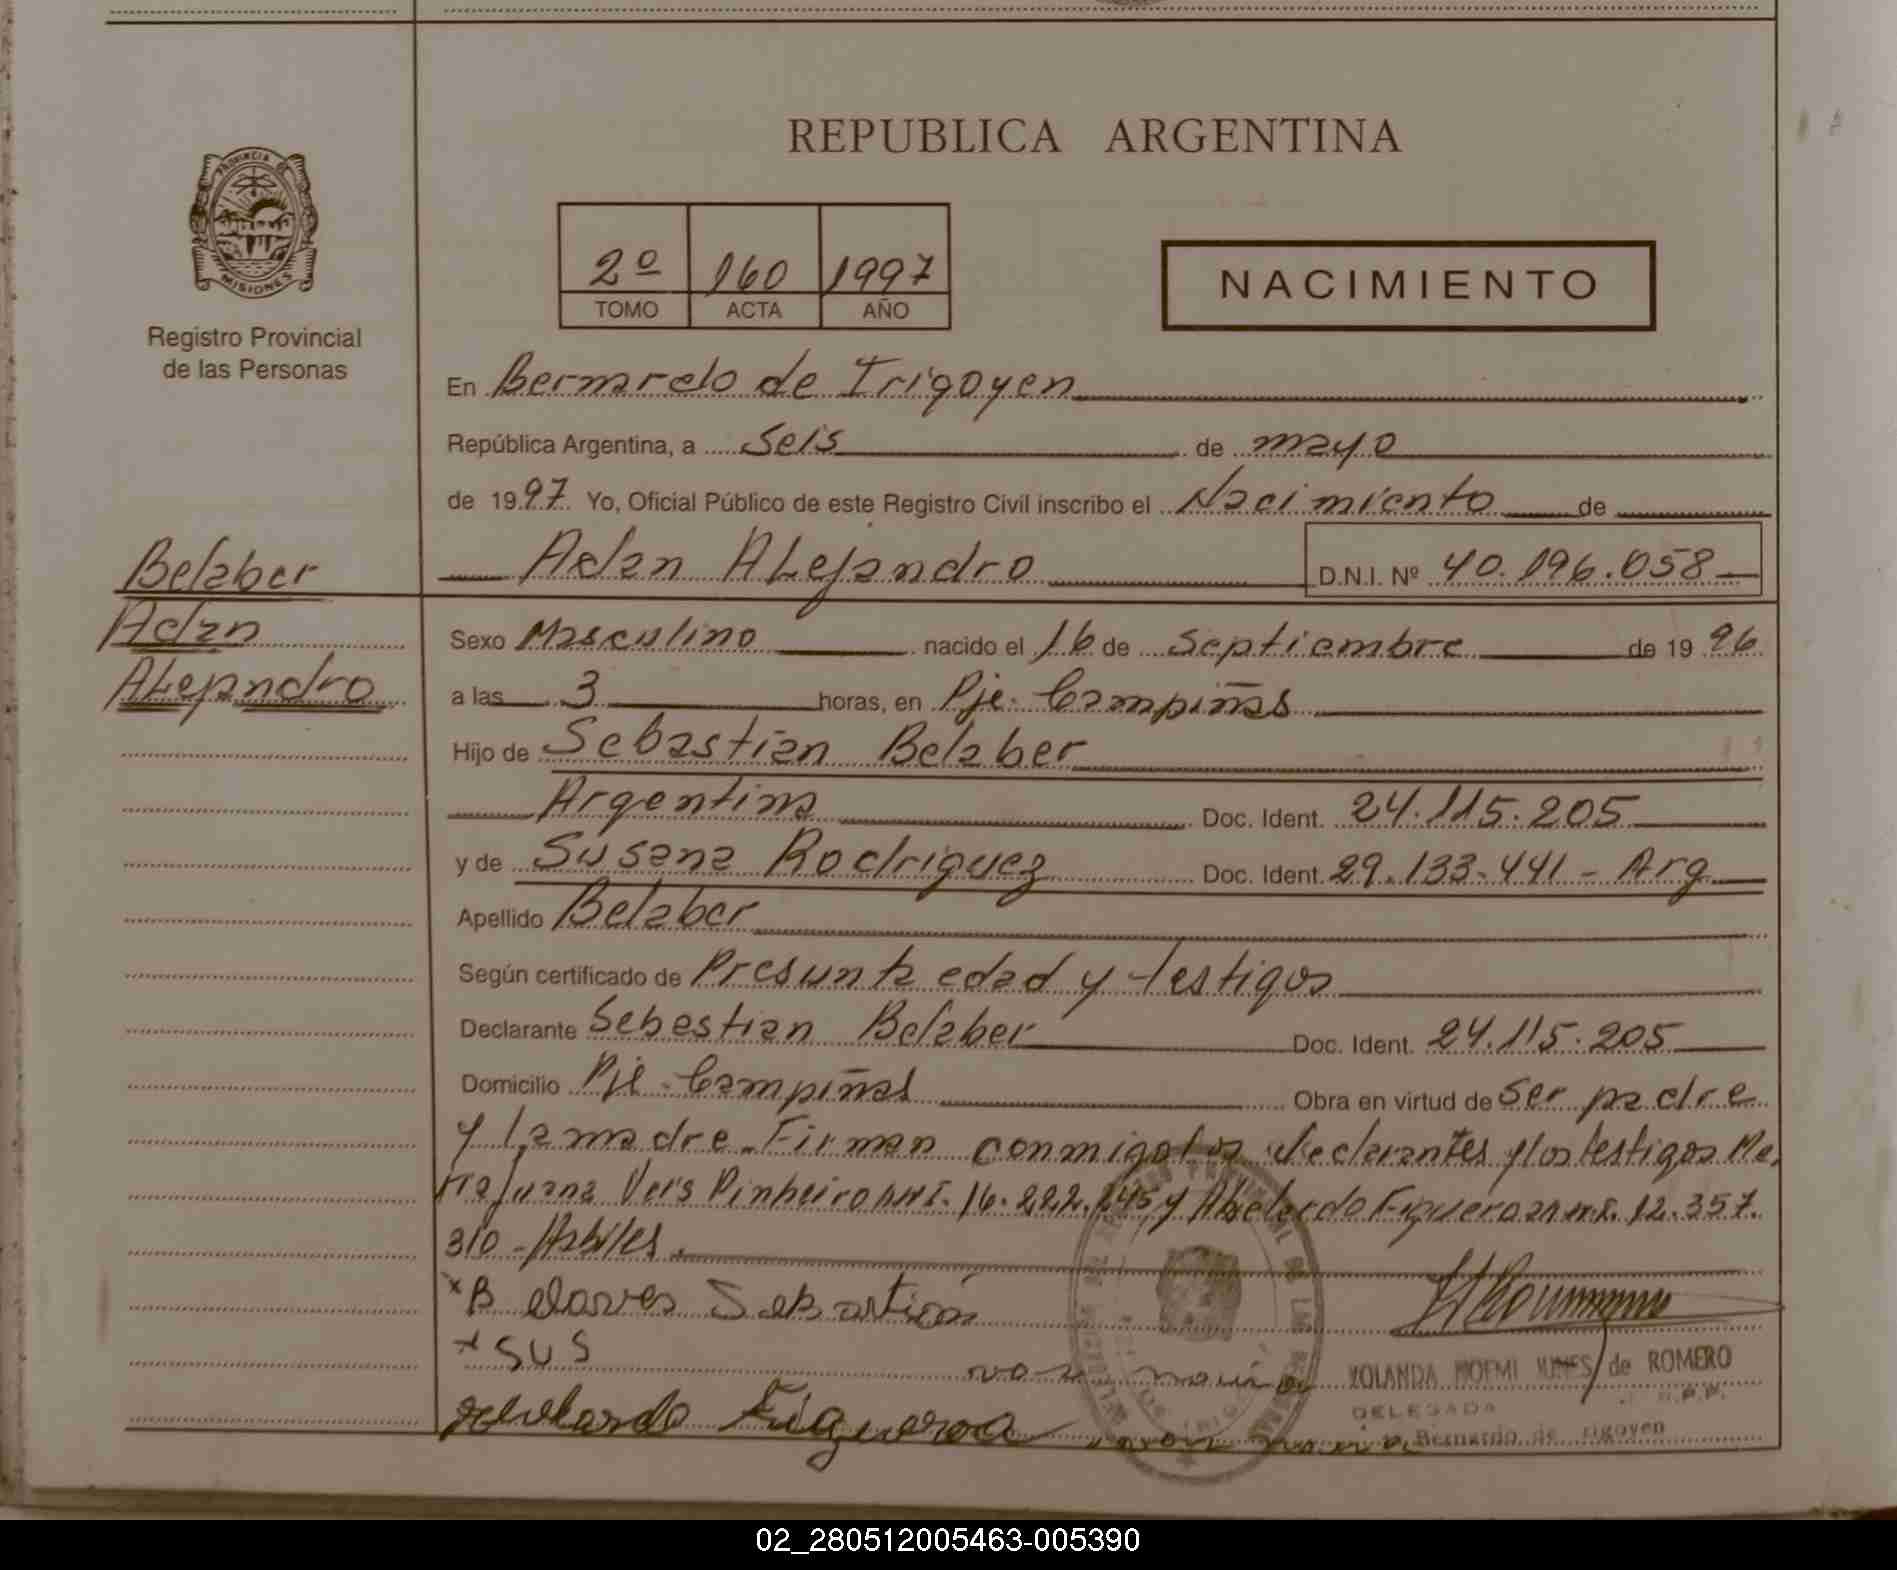 REPUBLICA ARGENTINA
PROVINCIA DE
MISIONES
Registro Provincial
de las Personas
2º 160 1997
TOMO ACTA AÑO
NACIMIENTO
En Bernardo de Irigoyen
República Argentina, a Seis de mayo
de 1997 Yo, Oficial Público de este Registro Civil inscribo el Nacimiento de
Adan ALejandro D.N.I. Nº 40.196.058
Belaber
Adan
ALejandro
Sexo Masculino nacido el 16 de Septiembre de 1996
a las 3 horas, en Pje. Campiñas
Hijo de Sebastian Belaber
Argentina Doc. Ident. 24.115.205
y de Susana Rodriguez Doc. Ident. 29.133.441 - Arg
Apellido Belaber
Según certificado de Presunta edad y testigos
Declarante Sebestian Belaber Doc. Ident. 24.115.205
Domicilio Pje. Campiñas Obra en virtud de ser padre
y la madre. Firman conmigo los declarantes y los testigos Ma
ria Juana Vera Pinheiro 16.222. y Abelardo Figueroa 12.357.
310 - Habiles.
Sebastian
SUS
Figueroa
YOLANDA NOEMI de ROMERO
DELEGADA
Bernardo de Irigoyen
02_280512005463-005390